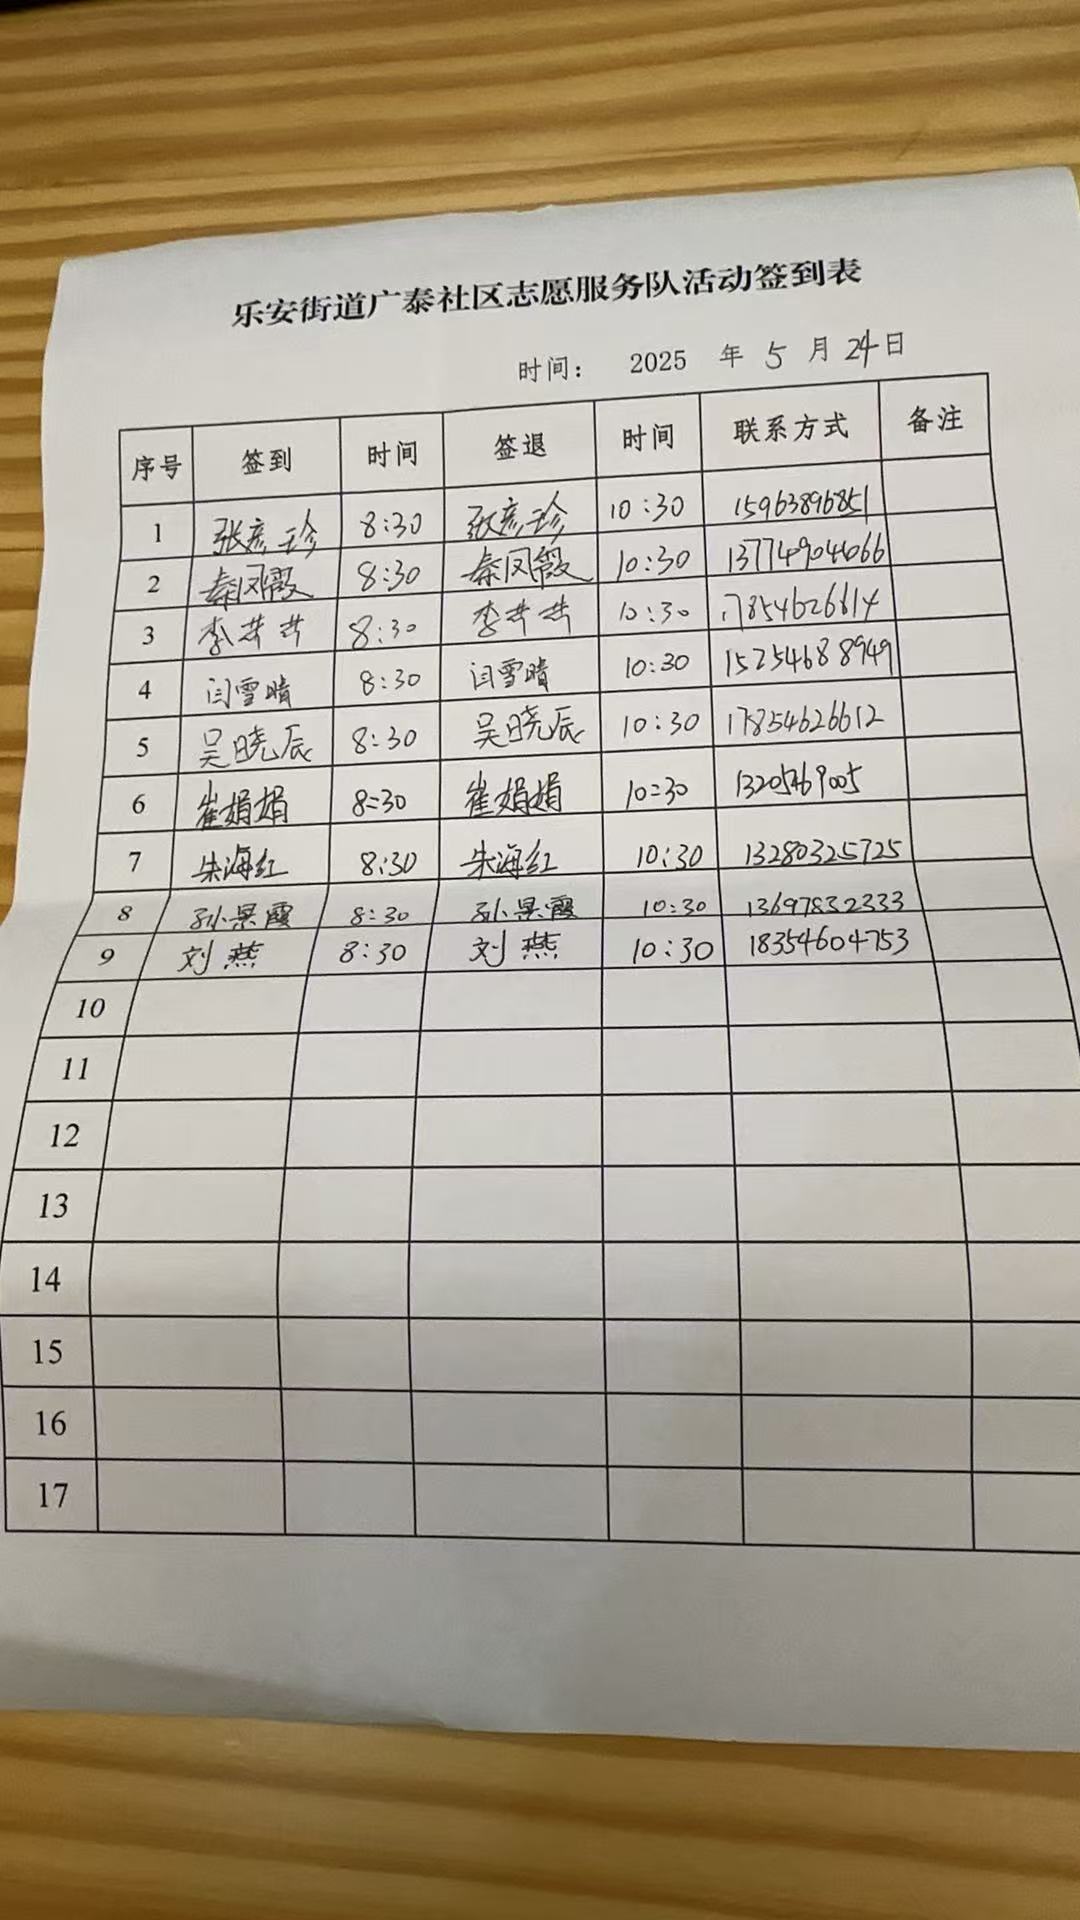 乐安街道广泰社区志愿服务队活动签到表
时间： 2025 年 5 月 24 日
序号 签到 时间 签退 时间 联系方式 备注
1 张彦珍 8:30 张彦珍 10:30 15963896851
2 秦凤霞 8:30 秦凤霞 10:30
3 李艹艹 8:30 李艹艹 10:30 17854626614
4 闫雪晴 8:30 闫雪晴 10:30 15254688949
5 吴晓辰 8:30 吴晓辰 10:30 17854626612
6 崔娟娟 8:30 崔娟娟 10:30
7 朱海红 8:30 朱海红 10:30 13280325725
8 孙景霞 8:30 孙景霞 10:30 13697832333
9 刘燕 8:30 刘燕 10:30 18354604753
10
11
12
13
14
15
16
17